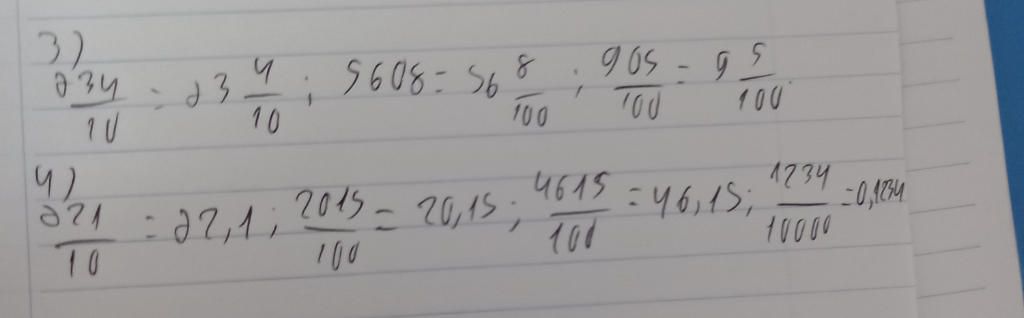 3)
234/10 = 23 4/10 ; 5608 = 56 8/100 ; 905/100 = 9 5/100.
4)
221/10 = 22,1 ; 2015/100 = 20,15 ; 4615/100 = 46,15 ; 1234/10000 = 0,1234